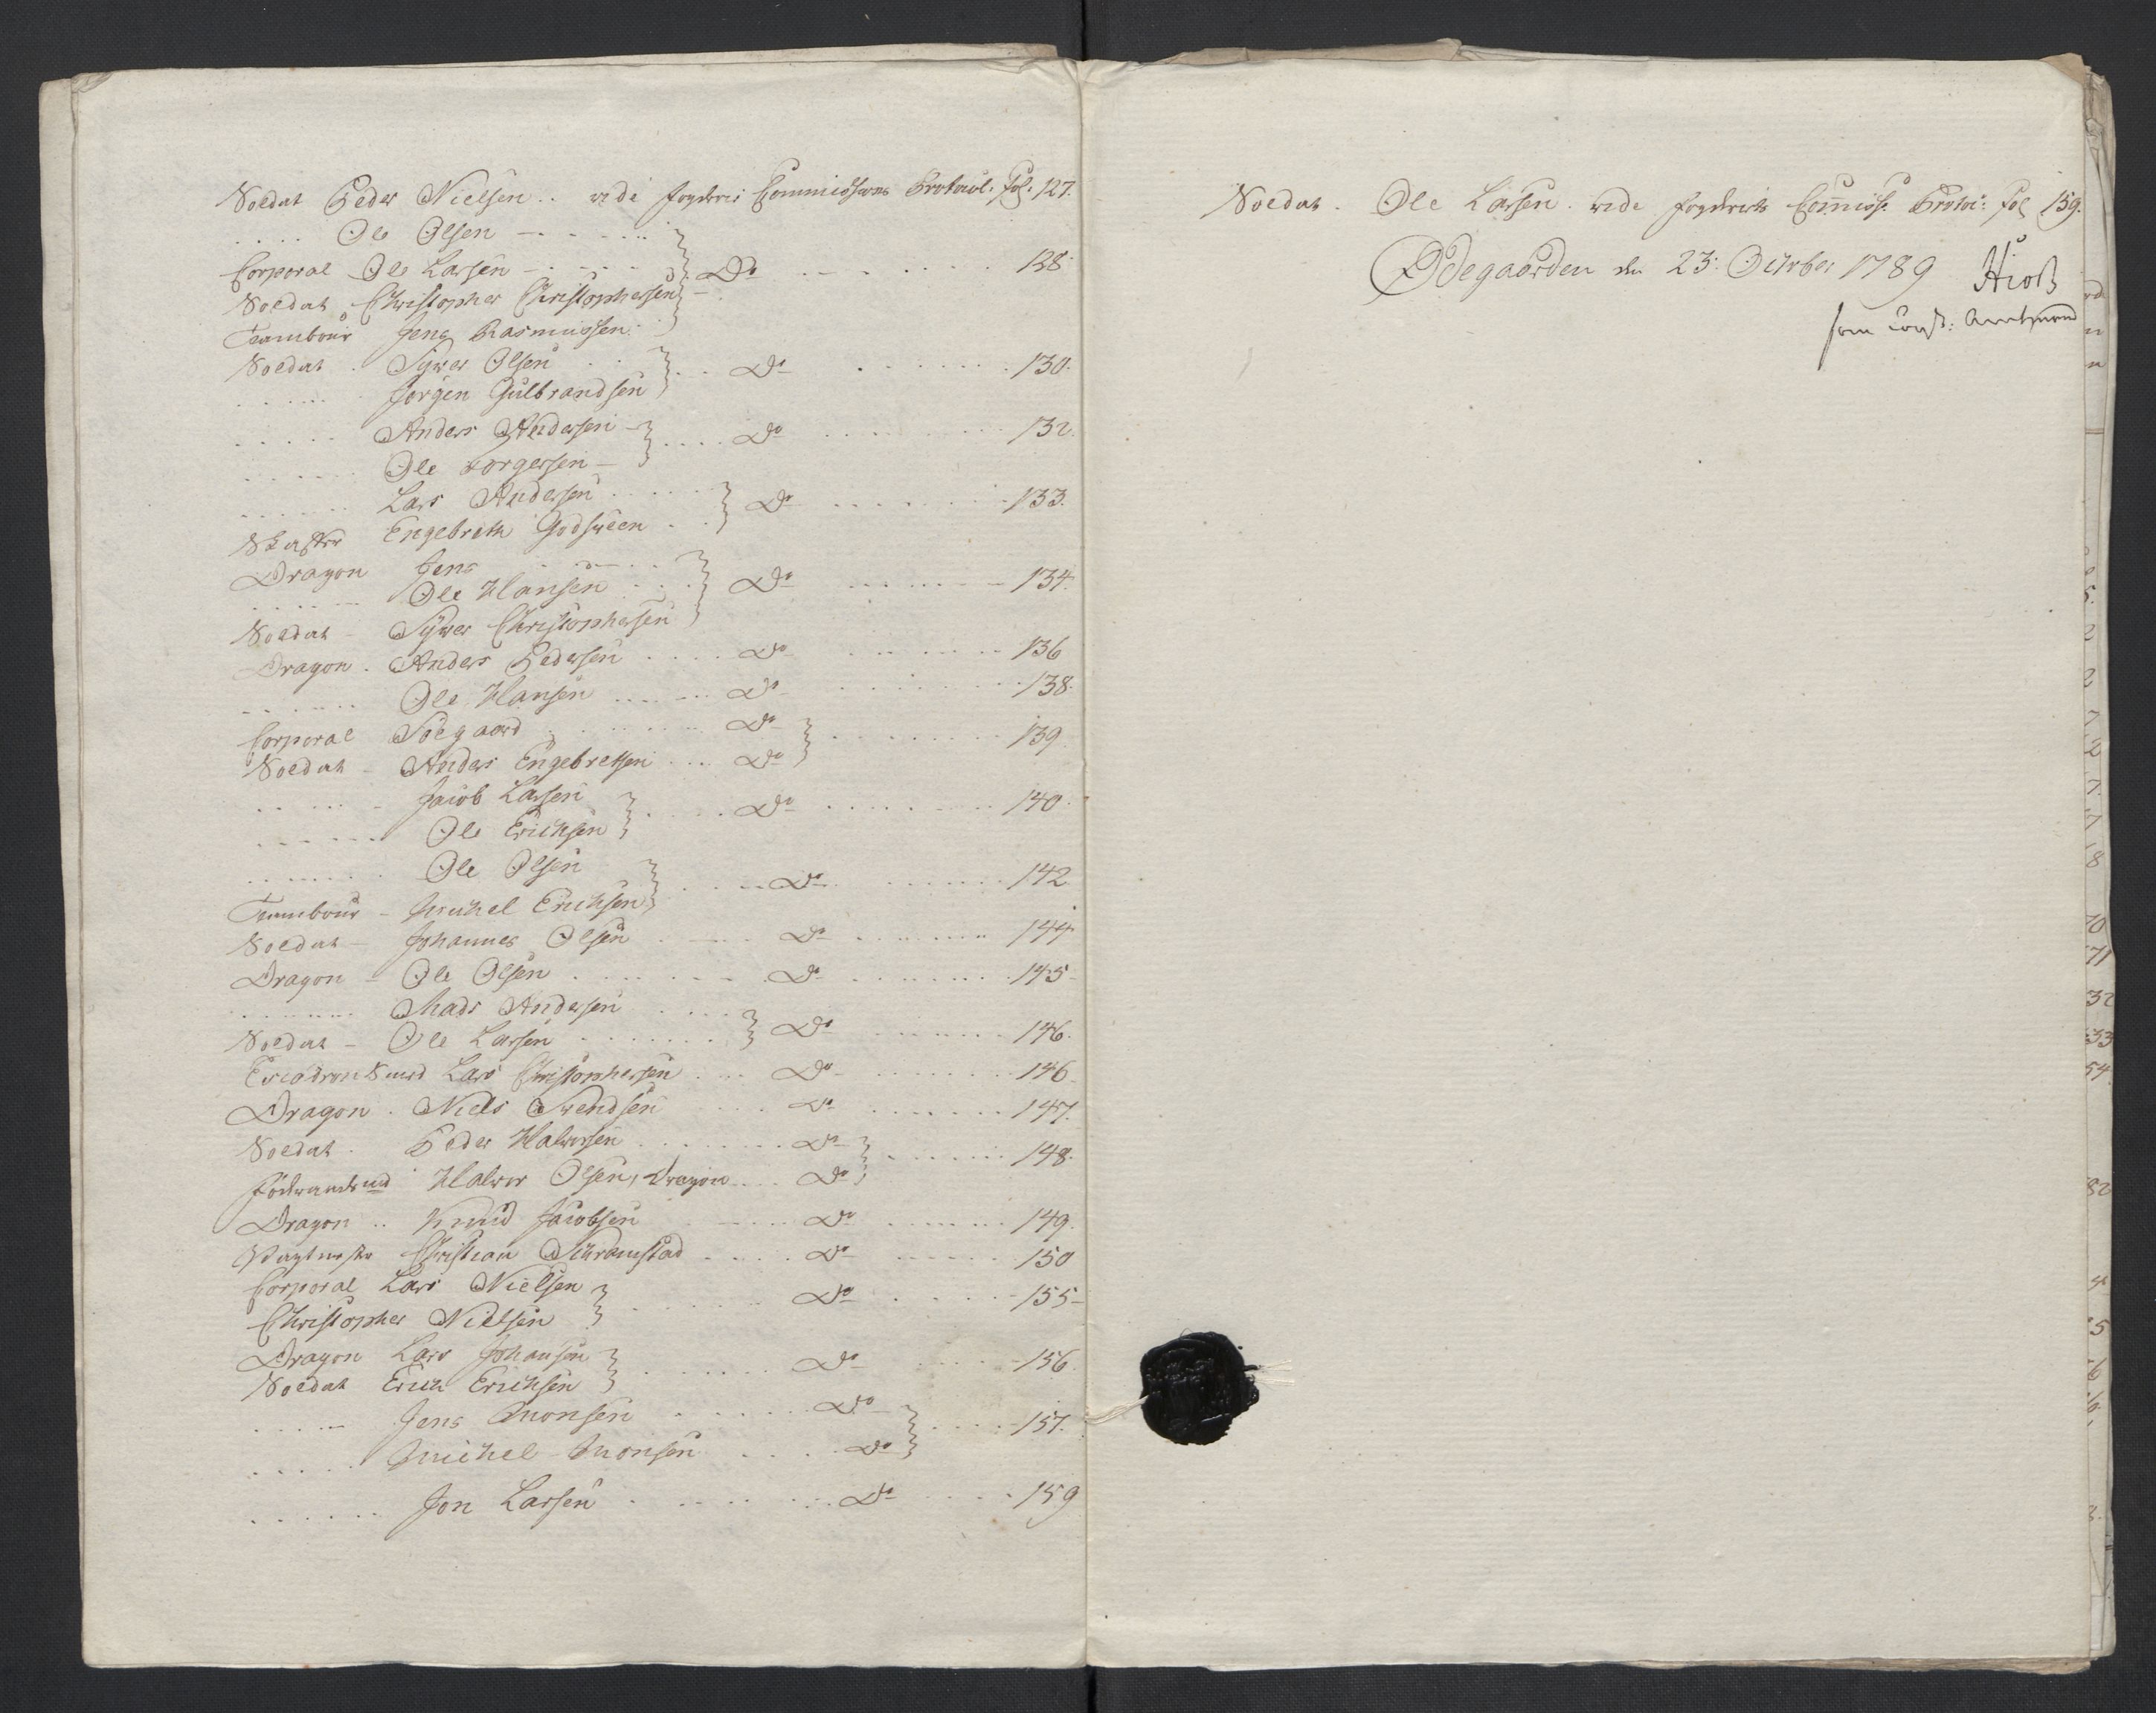 Soldat Peder Nielsen .. vide Fogderies Commissions Protocol: Fol: 127.
.... Ole Olsen - . - . - ...
Corporal Ole Larsen - . - . - . Do ... - . . . . . 128
Soldat Christopher Christophersen -
Tambour Jens Rasmussen .
Soldat . Syver Olsen . . . . Do . . . . . . . 130.
...... Jørgen Gulbrandsen
..... Anders Andersen - .... Do . . . . . . . 132.
.... Ole Torgersen -
...... Lars Andersen ..... Do ....... 133.
Engebreth Godsween . .
Dragon Jens . . . .
...... Ole Hansen . . . . Do ....... 134.
Soldat - Syver Christophersen
Dragon . Anders Pedersen .... Do ...... 136
...... Ole Hansen ...... Do ....... 138.
Corporal Soegaard ....... Do
Soldat - Anders Engebretsen ... Do ....... 139
..... - Jacob Larsen
...... Ole Erichsen .... Do ....... 140.
...... Ole Olsen
Tambour - Michel Erichsen .... Do ...... 142
Soldat - Johannes Olsen . - . Do ....... 144
Dragon - Ole Olsen ....... Do ....... 145-
...... Mads Andersen ....
Soldat - Ole Larsen ....... Do ...... 146.
Escadron Smed Lars Christophersen ... Do ....... 146
Dragon . Niels Svendsen .... Do ...... 147.
Soldat . Peder Halvorsen ....... Do
Halvor Olsen, Dragon .... Do ...... 148.
Dragon .. Knud Jacobsen .... Do ...... 149.
Christian Schramstad .... Do ...... 150
Corporal Lars Nielsen
Christopher Nielsen ...... Do ..... 155-
Dragon Lars Johansen
Soldat Erich Erichsen ...... Do .... 156.
.... - Jens Monsen ...... Do
..... Michel Monsen .... Do .... 157.
...... Jon Larsen . ...... Do .... 159
Soldat . Ole Larsen . vide Fogderiets Commiss: Protoc: Fol 159.
Ødegaarden den 23: October 1789 Hiort
som const: Amtmand